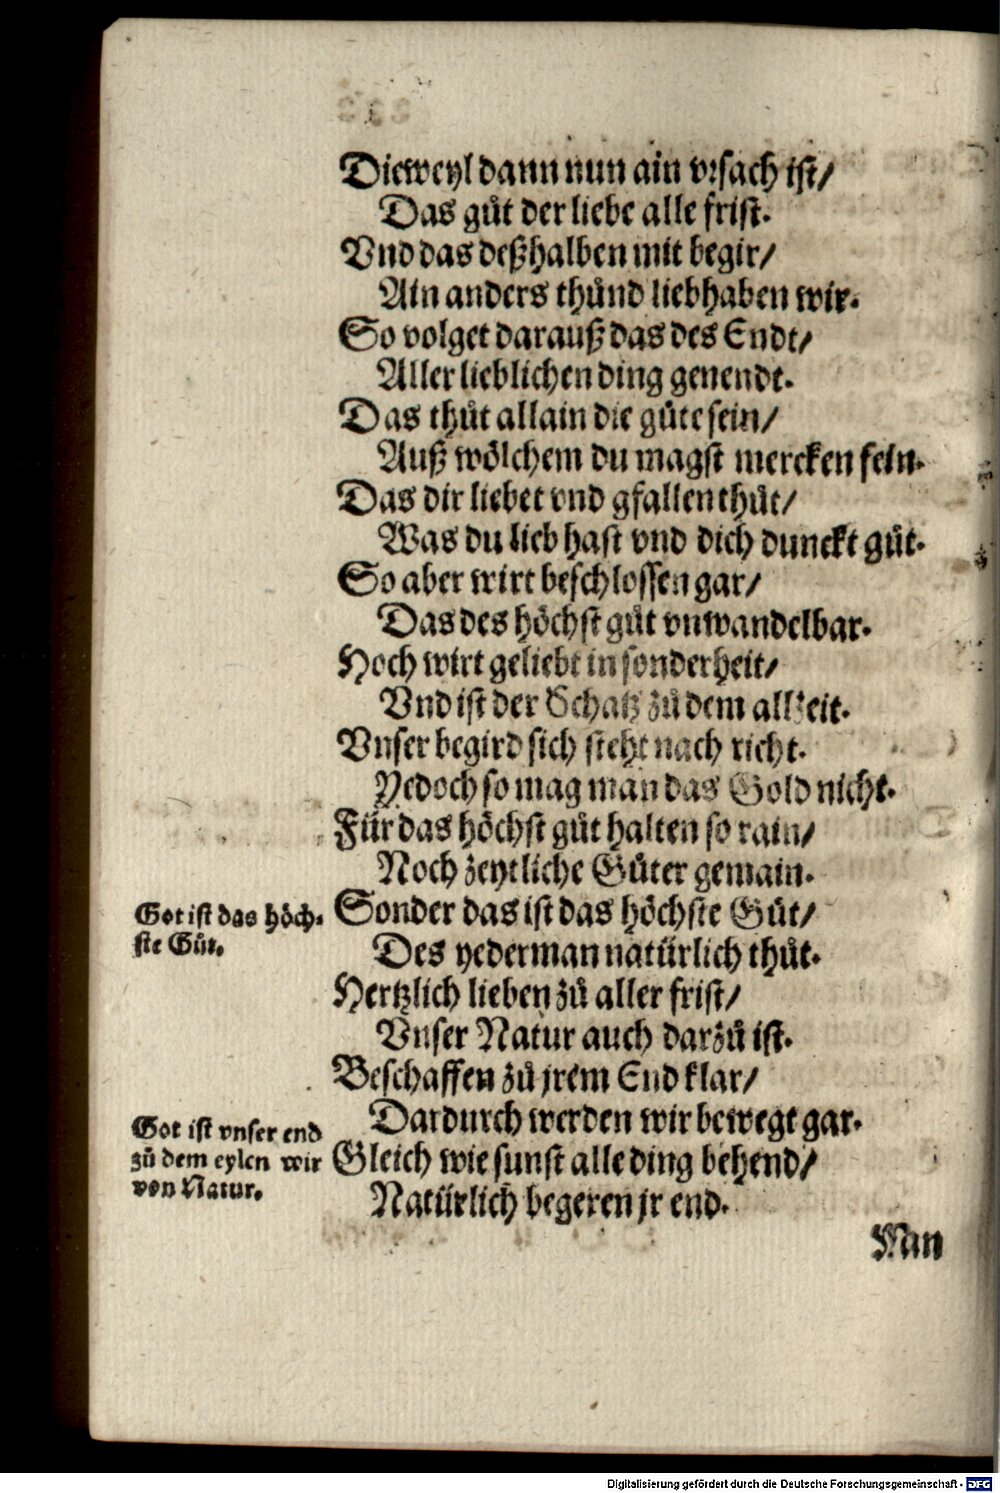 Dieweyl dann nun ain vrsach ist/
Das gůt der liebe alle frist.
Vnd das deßhalben mit begir/
Ain anders thůnd liebhaben wir.
So volget darauß das des Endt/
Aller lieblichen ding genendt.
Das thůt allain die güte sein/
Auß wölchem du magst mercken fein.
Das dir liebet vnd gfallen thůt/
Was du lieb hast vnd dich dunckt gůt.
So aber wirt beschlossen gar/
Das des höchst gůt vnwandelbar.
Hoch wirt geliebt in sonderheit/
Vnd ist der Schatz zů dem allzeit.
Vnser begird sich steht nach richt.
Yedoch so mag man das Gold nicht.
Für das höchst gůt halten so rain/
Noch zeytliche Güter gemain.
Got ist das höch-
ste Gůt.
Sonder das ist das höchste Gůt/
Des yederman natürlich thůt.
Hertzlich lieben zů aller frist/
Vnser Natur auch darzů ist.
Beschaffen zů jrem End klar/
Dardurch werden wir bewegt gar.
Got ist vnser end
zů dem eylen wir
von Natur.
Gleich wie sunst alle ding behend/
Natürlich begeren jr end.
Man
Digitalisierung gefördert durch die Deutsche Forschungsgemeinschaft - DFG